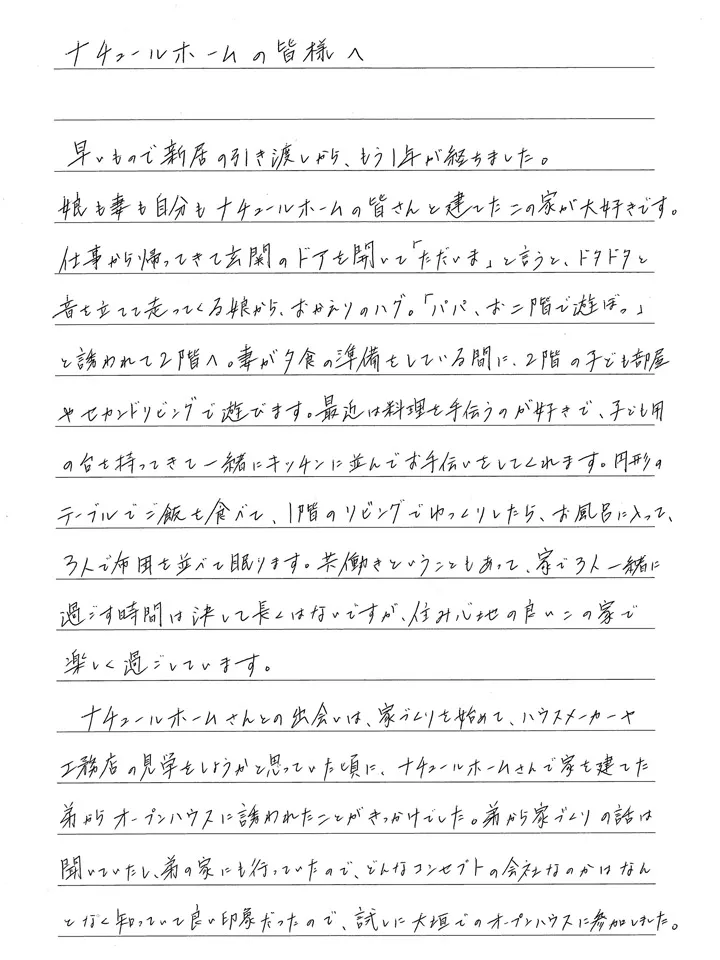 ナチュールホームの皆様へ
早いもので新居の引き渡しから、もう1年が経ちました。
娘も妻も自分もナチュールホームの皆さんと建てたこの家が大好きです。
仕事から帰ってきて玄関のドアを開いて「ただいま」と言うと、ドタドタと
音を立てて走ってくる娘から、おかえりのハグ。「パパ、お二階で遊ぼっ」
と誘われて2階へ。妻が夕食の準備をしている間に、2階の子ども部屋
やセカンドリビングで遊びます。最近は料理を手伝うのが好きで、子ども用
の台を持ってきて一緒にキッチンに並んでお手伝いをしてくれます。円形の
テーブルでご飯を食べて、1階のリビングでゆっくりしたら、お風呂に入って、
3人で布団を並べて眠ります。共働きということもあって、家で3人一緒に
過ごす時間は決して長くはないですが、住み心地の良いこの家で
楽しく過ごしています。
ナチュールホームさんとの出会いは、家づくりを始めて、ハウスメーカーや
工務店の見学をしようかと思っていた頃に、ナチュールホームさんで家を建てた
弟からオープンハウスに誘われたことがきっかけでした。弟から家づくりの話は
聞いていたし、弟の家にも行っていたので、どんなコンセプトの会社なのかはなん
となく知っていて良い印象だったので、試しに大垣でのオープンハウスに参加しました。